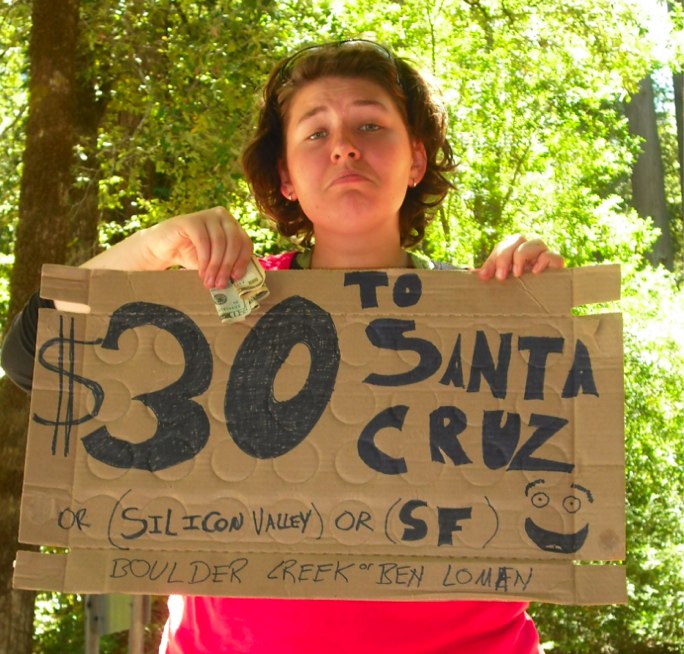 $30 TO
SANTA
CRUZ
OR (SILICON VALLEY) OR (SF)
BOULDER CREEK or BEN LOMEN